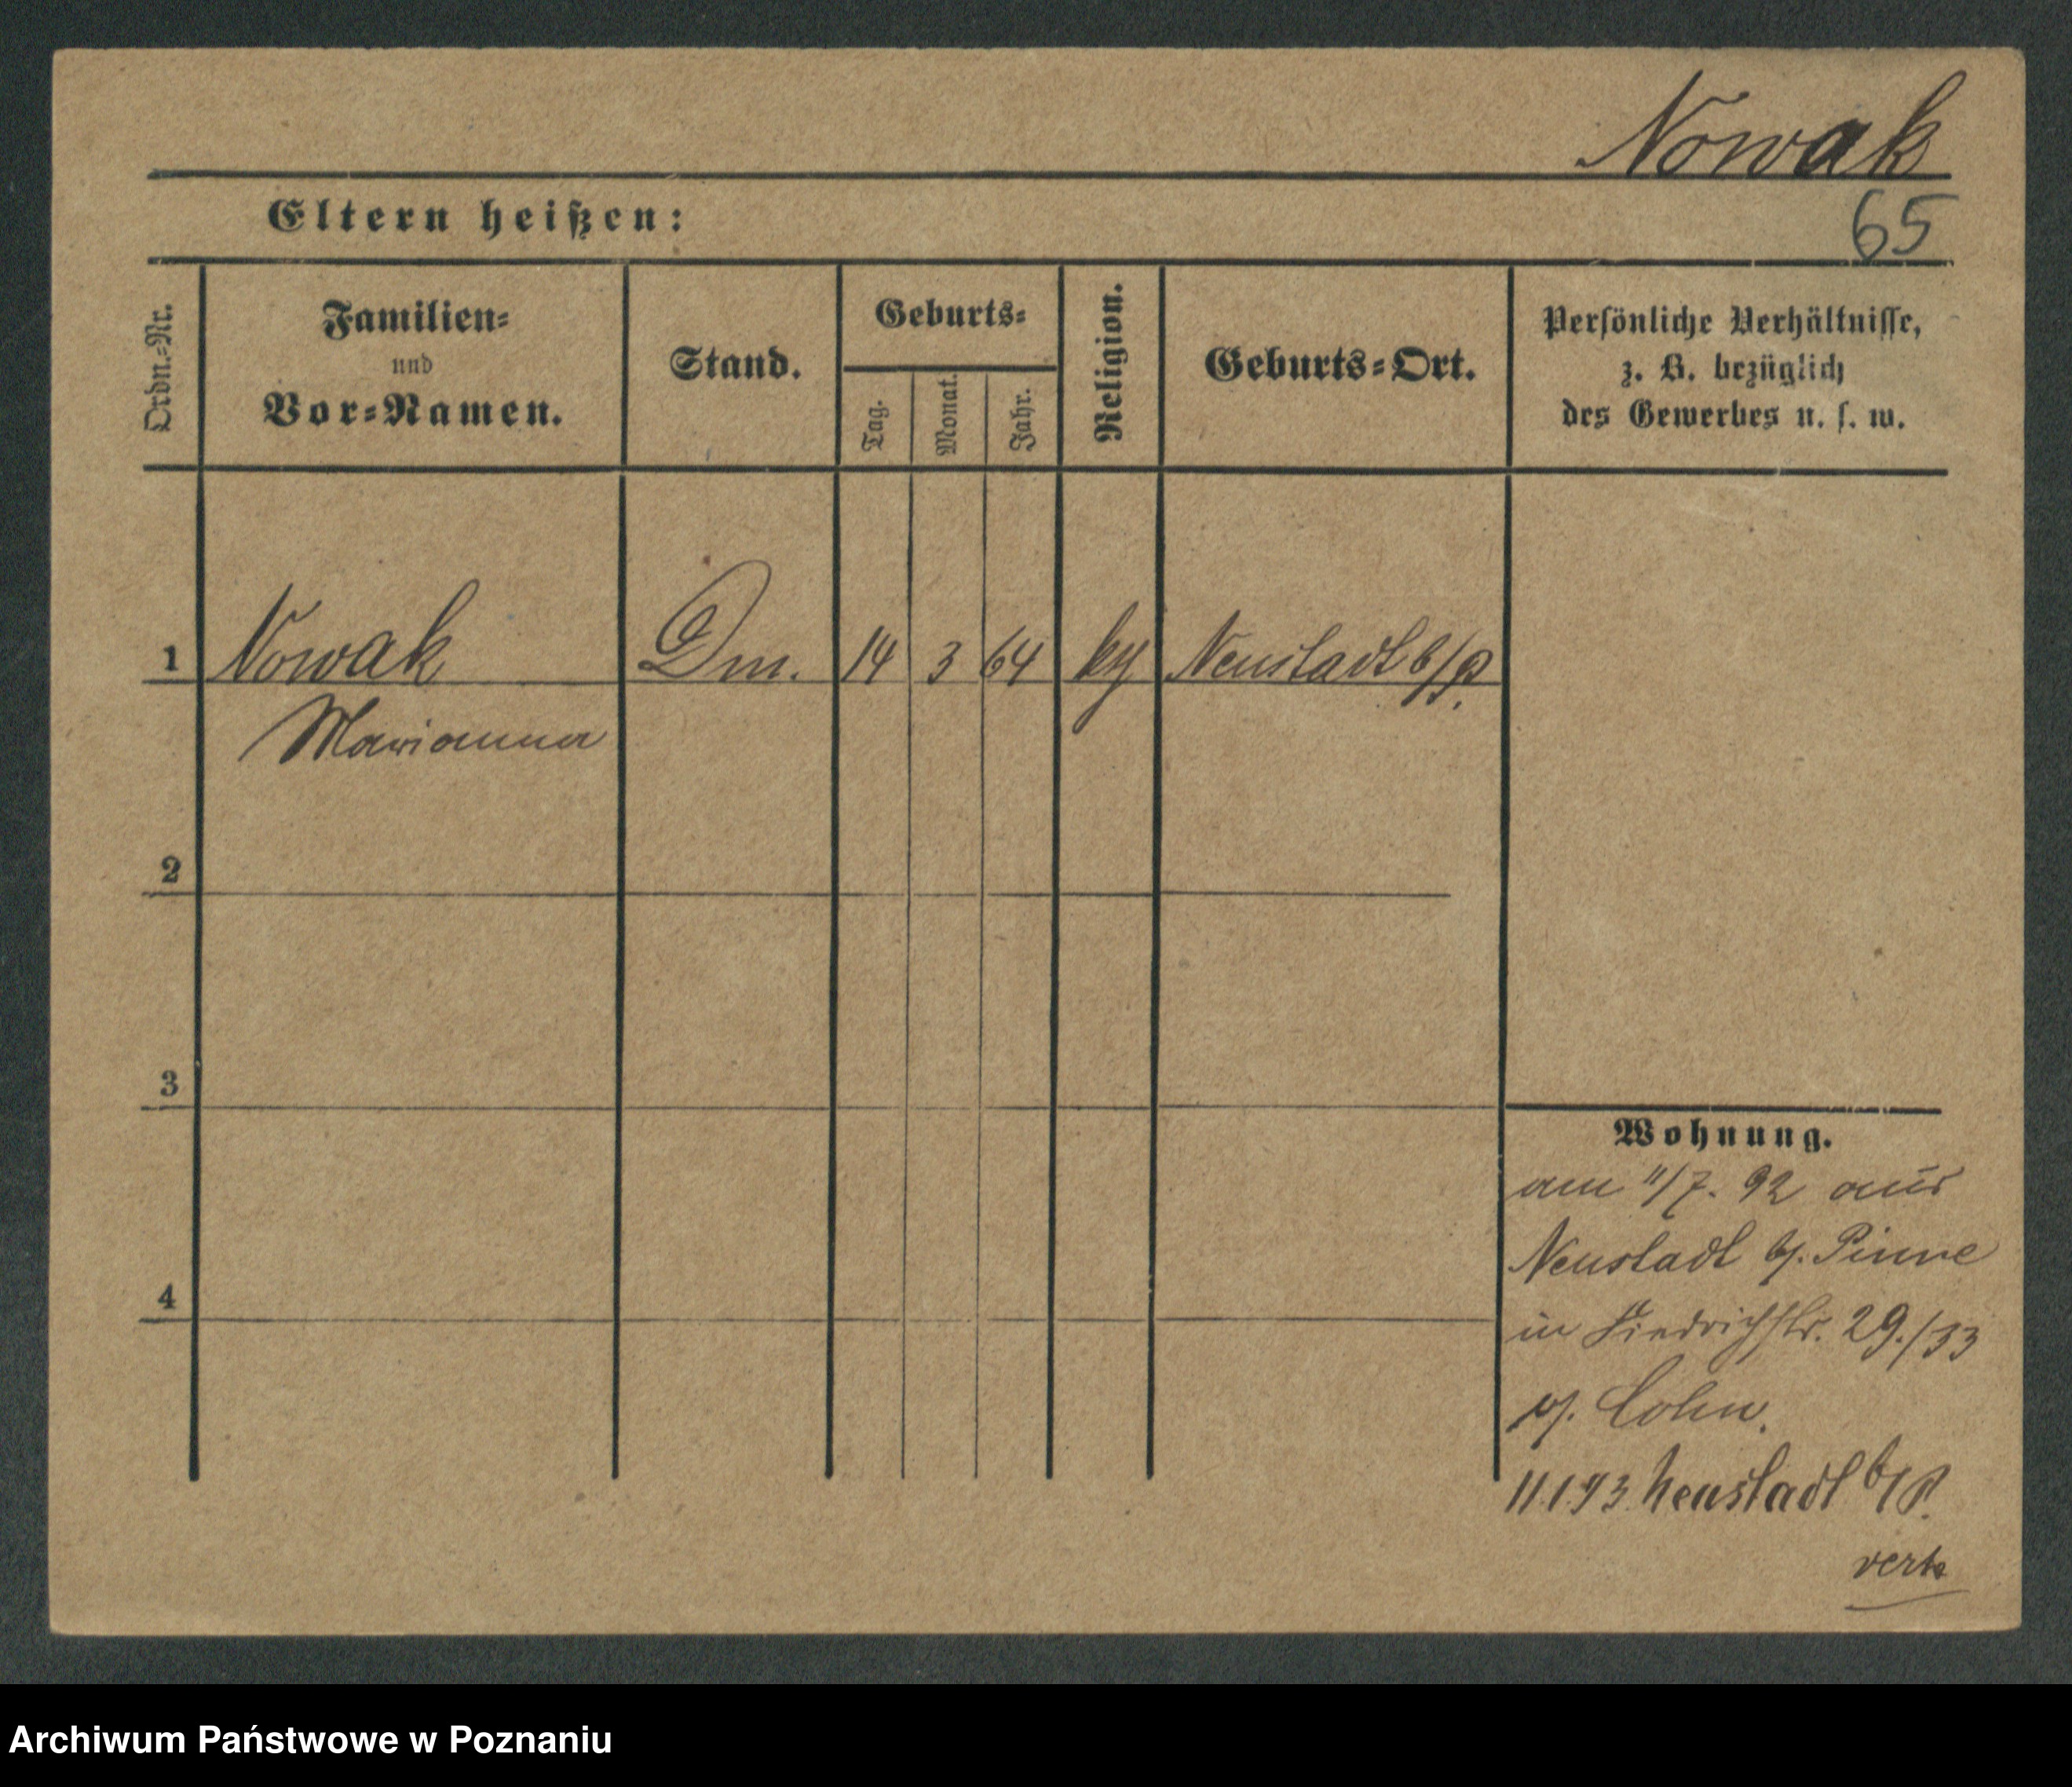 Nowak
Eltern heißen:
65
Ordn.=Nr.
Familien=
und
Vor=Namen.
Stand.
Geburts=
Tag.
Monat.
Jahr.
Religion.
Geburts=Ort.
Persönliche Verhältnisse,
z. B. bezüglich
des Gewerbes u. s. w.
1 Nowak Dm. 14 3 64 Neustadt b/P.
Marianna
2
3
4
Wohnung.
am 11/7. 92 aus
Neustadt b/. Pinne
in Friedrichstr. 29./33
Cohn.
11.1.93. Neustadt b/P.
Archiwum Państwowe w Poznaniu